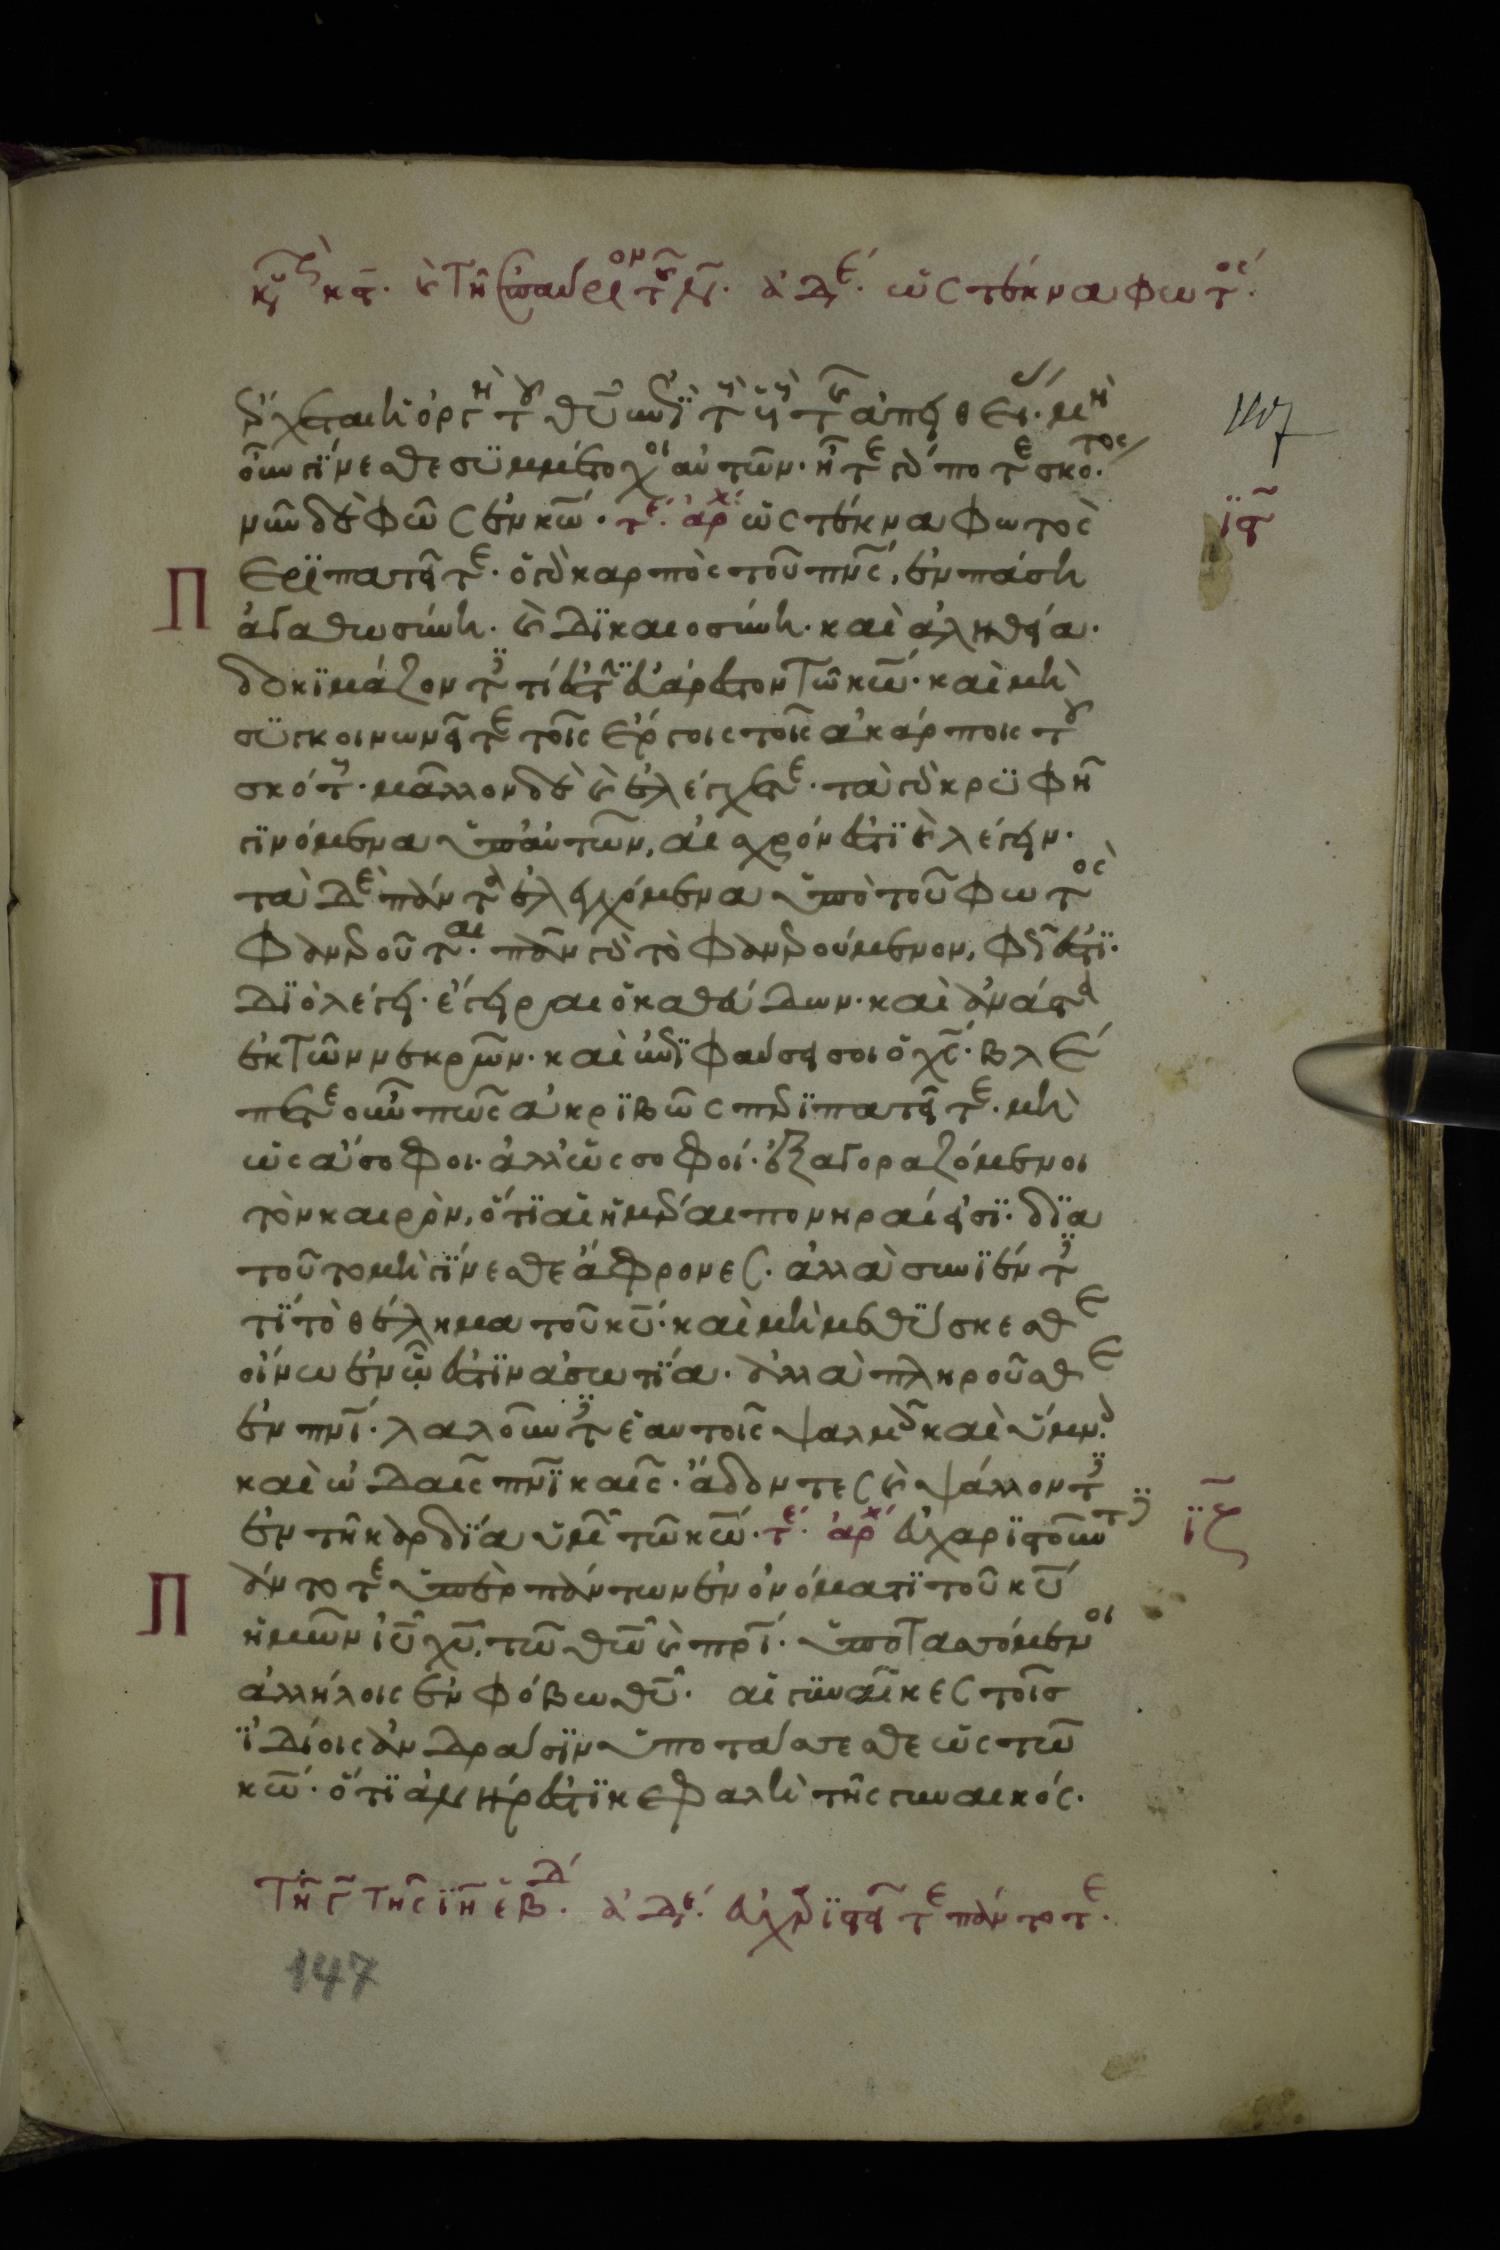 ἀδε. ὡς τέκνα φωτός
ἔρχεται ἡ ὀργὴ τοῦ θῡ ἐπὶ τοὺς υἱοὺς τῆς ἀπειθείας. μὴ
οὖν γίνεσθε συμμέτοχοι αὐτῶν. ἦτε γάρ ποτε σκότος
νῦν δὲ φῶς ἐν κω̄. τέ. ἀρχ ὡς τέκνα φωτὸς
ις
Περϊπατεῖτε. ὁ γὰρ καρπὸς τοῦ πνς̄, ἐν πάση
ἀγαθωσύνη. καὶ δϊκαιοσύνη. καὶ ἀληθεία.
δοκϊμάζοντες τί ἐστϊν εὐάρεστον τῶ κω̄. καὶ μὴ
συγκοινωνεῖτε τοῖς ἔργοις τοῖς ἀκάρποις τοῦ
σκότους. μᾶλλον δὲ καὶ ἐλέγχετε. τὰ γὰρ κρυφῆ
γϊνόμενα ὑπ' αὐτῶν, αἰσχρόν ἐστϊ καὶ λέγειν.
τὰ δὲ πάντα ἐλεγχόμενα ὑπὸ τοῦ φωτὸς
φανεροῦται. πᾶν γὰρ τὸ φανερούμενον, φῶς ἐστϊ.
δϊὸ λέγει. ἔγειραι ὁ καθεύδων. καὶ ἀνάστα
ἐκ τῶν νεκρῶν. καὶ ἐπϊφαύσει σοι ὁ χς̄. βλέ
πετε οὖν πῶς ἀκρϊβῶς περϊπατεῖτε. μὴ
ὡς ἄσοφοι. ἀλλ' ὡς σοφοί. ἐξαγοραζόμενοι
τὸν καιρὸν, ὅτϊ αἱ ἡμέραι πονηραί εἰσϊ. δϊα
τοῦτο μὴ γϊνεσθε ἄφρονες. ἀλλὰ συνϊέντες
τί τὸ θέλημα τοῦ κῡ. καὶ μὴ μεθύσκεσθε
οἴνω ἐν ὧ ἐστϊν ἀσωτϊα. ἀλλὰ πληροῦσθε
ἐν πνϊ. λαλοῦντες ἑαυτοῖς ψαλμοῖς καὶ ὕμνοις
καὶ ὠδαῖς πνϊκαῖς. ἄδοντες καὶ ψάλλοντες
ἐν τῆ καρδϊα ὑμῶν τῶ κω̄. τέ. ἀρχ εὐχαρϊστοῦντες
ιζ
Πάντοτε ὑπὲρ πάντων ἐν ὀνόματϊ τοῦ κῡ
ἡμῶν ιῡ χῡ, τῶ θω̄ καὶ πρϊ. ὑποτασσόμενοι
ἀλλήλοις ἐν φόβω θῡ. αἱ γυναῖκες τοῖς
ἰδίοις ἀνδράσϊν ὑποτάσσεσθε ὡς τῶ
κω̄. ὅτϊ ἀνήρ ἐστϊ κεφαλὴ τῆς γυναικός.
ἀδε. εὐχαρϊστεῖτε πάντοτε.
147